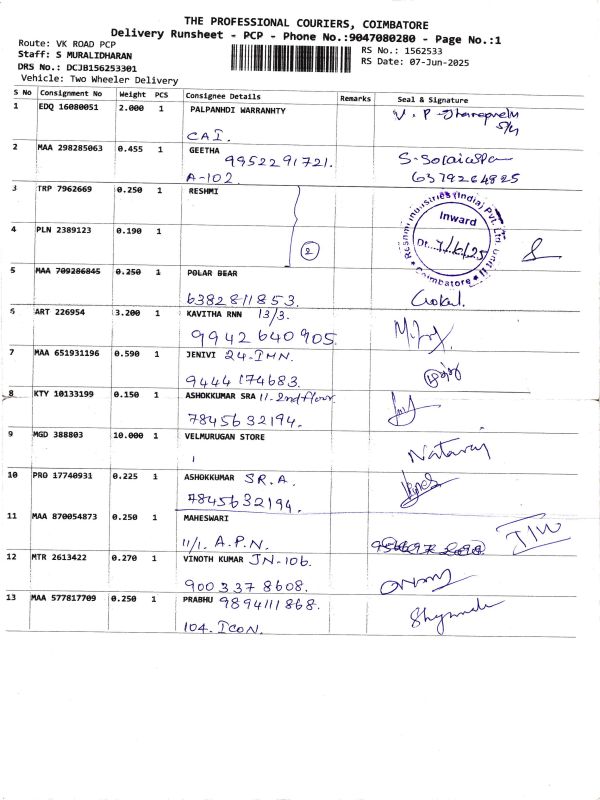 THE PROFESSIONAL COURIERS, COIMBATORE
Delivery Runsheet - PCP - Phone No.:9047080280 - Page No.:1
Route: VK ROAD PCP
RS No.: 1562533
Staff: S MURALIDHARAN
RS Date: 07-Jun-2025
DRS No.: DCJB156253301
Vehicle: Two Wheeler Delivery
S No Consignment No Weight PCS Consignee Details Remarks Seal & Signature
1 EDQ 16080051 2.000 1 PALPANHDI WARRANHTY
CAI.
2 MAA 298285063 0.455 1 GEETHA
9952291721.
A-102. 6379264825
3 TRP 7962669 0.250 1 RESHMI
Reshmi Industries (India) Pvt. Ltd. Unit II
Inward
Dt. 7/6/25
Coimbatore
4 PLN 2389123 0.190 1
2
5 MAA 709286845 0.250 1 POLAR BEAR
6382811853. Gokul.
6 ART 226954 3.200 1 KAVITHA RNN 13/3.
9942640905.
7 MAA 651931196 0.590 1 JENIVI 24-IHN.
9444174683.
8 KTY 10133199 0.150 1 ASHOKKUMAR SRA 11-2nd floor
7845632194.
9 MGD 388803 10.000 1 VELMURUGAN STORE
Nataraj
10 PRO 17740931 0.225 1 ASHOKKUMAR S.R.A.
7845632194.
11 MAA 870054873 0.250 1 MAHESWARI
11/1. A.P.N.
12 MTR 2613422 0.270 1 VINOTH KUMAR JN-106.
9003378608.
13 MAA 577817709 0.250 1 PRABHU 9894111868.
104. ICON.